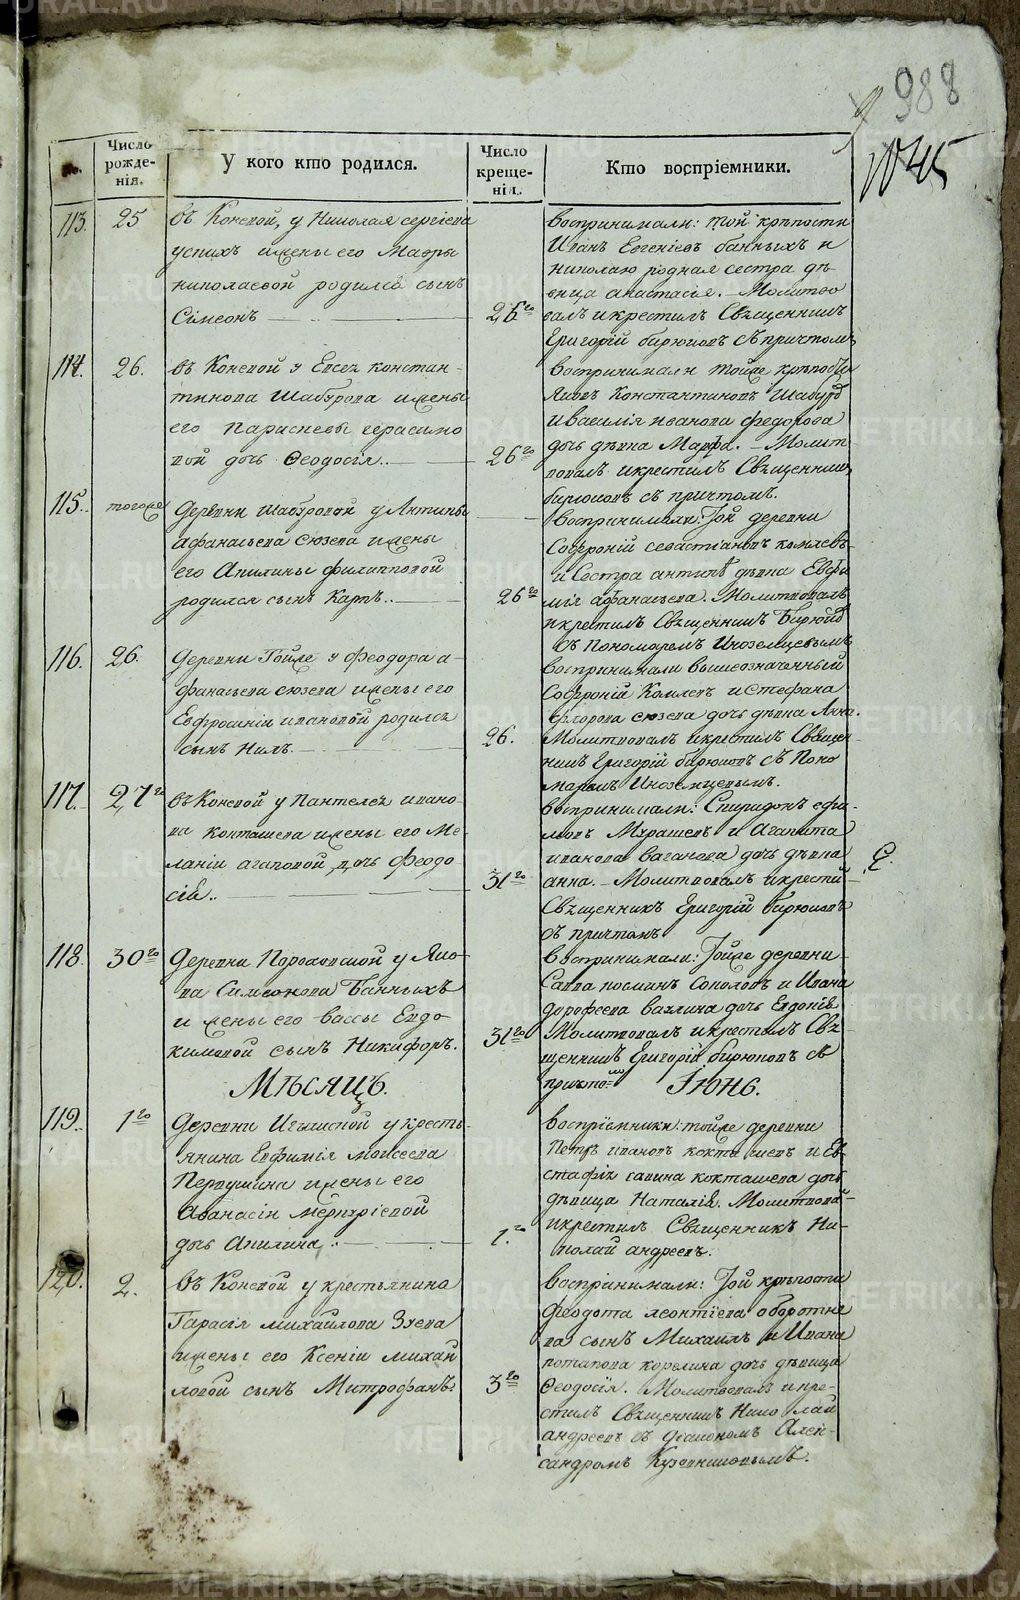 988
1045
№.
Число рожде-нія.
У кого кто родился.
Число креще-нія.
Кто воспріемники.
113. 25
въ Коневой, у Николая сергіева
успихъ ижены его Мавры
николаевой родился сынъ
Сімеонъ
26го
воспринимали: той крѣпости
Иванъ Евгеніевъ банныхъ и
николаю родная сестра дѣ-
вица анастасія. Молитво
валъ икрестилъ Священникъ
Григорій бирюковъ съ причтомъ
114. 26.
въ Коневой у Евсея констан-
тинова Шабурова ижены
его Параскевы герасимо
вой дочь Ѳеодосія..
26го
воспринимали тойже крѣпости
Яковъ Константиновъ Шабуровъ
и василія иванова федорова
дочь дѣвка Марфа. Молит-
вовалъ икрестилъ Священникъ
бирюковъ съ причтомъ.
115. тогоже
Деревни Шабуровой у Антипы
афанасьева сюзева ижены
его Акилины филипповой
родился сынъ Карпъ..
26го
Воспринимали: Той деревни
Софроній севастіановъ комлевъ
и Сестра антипѣ дѣвка Евфи
мія афанасьева. Молитвовалъ
икрестилъ Священникъ Бирюковъ
съ Пономаремъ Иноземцевымъ
116. 26.
Деревни Тойже у Феодора а-
фанасьева сюзева ижены его
Евфросиніи ивановой родился
сынъ Нилъ.
26.
воспринимали вышеозначенный
Софроній Комлевъ и Стефана
сюзева дочь дѣвка Анна.
Молитвовалъ икрестилъ Священ-
никъ Григорій бирюковъ съ Поно
маремъ Иноземцевымъ.
117. 27го
въ Коневой у Пантелея ивано-
ва кокташева ижены его Ме-
ланіи агаповой, дочь Феодо
сія..
31го
воспринимали: Спиридонъ ефи-
мовъ Мурашевъ и Агапита
иванова ваганова дочь дѣвка
анна. Молитвовалъ икрестил
Священникъ Григорій бирюковъ
съ причтомъ
118. 30го
Деревни у Яко-
ва Симеонова Банныхъ
и жены его вассы Евдо-
кимовой сынъ Никифоръ.
31го
воспринимали: Тойже деревни
Савва козминъ Соколовъ и Ивана
дорофеева дочь Евдокія
Молитвовалъ икрестилъ Свя-
щенникъ Григорій бирюковъ съ
причто-
Мѣсяцъ. Іюнь.
119. 1го
Деревни Игишской у кресть-
янина Евфимія Моисеева
Первушина ижены его
Аѳанасіи Меркуріевой
дочь Акилина,.
1.го
воспріемники: тойже деревни
Петръ ивановъ кокташевъ и Ев-
стафія савина кокташева дочь
дѣвица Наталія. Молитвовал
икрестилъ Священникъ Ни-
колай андреевъ.
120. 2.
въ Коневой у крестьянина
Тарасія михайлова Зуева
ижены его Ксеніи михай
ловой сынъ Митрофанъ.
3го
Воспринимали: Той крѣпости
Феодота леонтіева оборотне
ва сынъ Михаилъ и Ивана
потапова корелина дочь дѣвица
Ѳеодосія. Молитвовалъ икре-
стилъ Священникъ Николай
андреевъ съ діакономъ Алек-
сандромъ Кузовниковымъ.